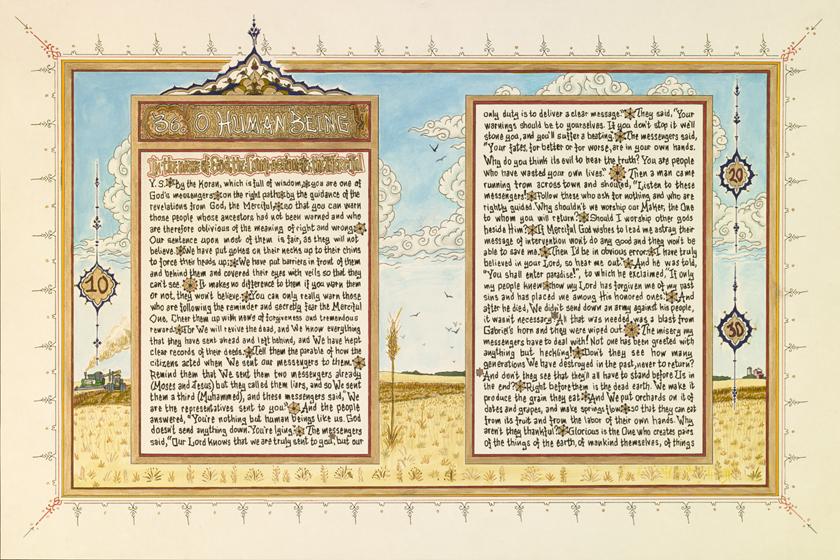 36. O HUMAN BEING
In the name of God, the Compassionate, the Merciful
Y. S. By the Koran, which is full of wisdom, you are one of
God's messengers on the right path by the guidance of the
revelations from God, the Merciful, so that you can warn
those people whose ancestors had not been warned and who
are therefore oblivious of the meaning of right and wrong.
Our sentence upon most of them is fair, as they will not
believe. We have put yokes on their necks up to their chins
to force their heads up. We have put barriers in front of them
and behind them and covered their eyes with veils so that they
can't see. It makes no difference to them if you warn them
or not, they won't believe. You can only really warn those
who are following the reminder and secretly fear the Merciful
One. Cheer them up with news of forgiveness and tremendous
reward. For We will revive the dead, and We know everything
that they have sent ahead and left behind, and We have kept
clear records of their deeds. Tell them the parable of how the
citizens acted when We sent our messengers to them.
Remind them that We sent them two messengers already
(Moses and Jesus) but they called them liars, and so We sent
them a third (Muhammed), and these messengers said, "We
are the representatives sent to you." And the people
answered, "You're nothing but human beings like us. God
doesn't send anything down. You're lying." The messengers
said, "Our Lord knows that we are truly sent to you, but our
10
only duty is to deliver a clear message." They said, "Your
warnings should be to yourselves. If you don't stop it we'll
stone you, and you'll suffer a beating." The messengers said,
"Your fates, for better or for worse, are in your own hands.
Why do you think its evil to hear the truth? You are people
who have wasted your own lives." Then a man came
running from across town and shouted, "Listen to these
messengers! Follow these who ask for nothing, and who are
rightly guided. Why shouldn't we worship our Maker, the One
to whom you will return? Should I worship other gods
beside Him? If Merciful God wishes to lead me astray their
message of intervention won't do any good and they won't be
able to save me. Then I'd be in obvious error. I have truly
believed in your Lord, so hear me out." And he was told,
"You shall enter paradise!", to which he exclaimed, "If only
my people knew how my Lord has forgiven me of my past
sins and has placed me among His honored ones." And
after he died, We didn't send down an army against his people,
it wasn't necessary. All that was needed was a blast from
Gabriel's horn and they were wiped out. The misery my
messengers have to deal with! Not one has been greeted with
anything but heckling! Don't they see how many
generations We have destroyed in the past, never to return?
And don't they see that they'll all have to stand before Us in
the end? Right before them is the dead earth. We make it
produce the grain they eat. And We put orchards on it of
dates and grapes, and make springs flow, so that they can eat
from its fruit and from the labor of their own hands. Why
aren't they thankful? Glorious is the One who creates pairs
of the things of the earth, of mankind themselves, of things
20
30